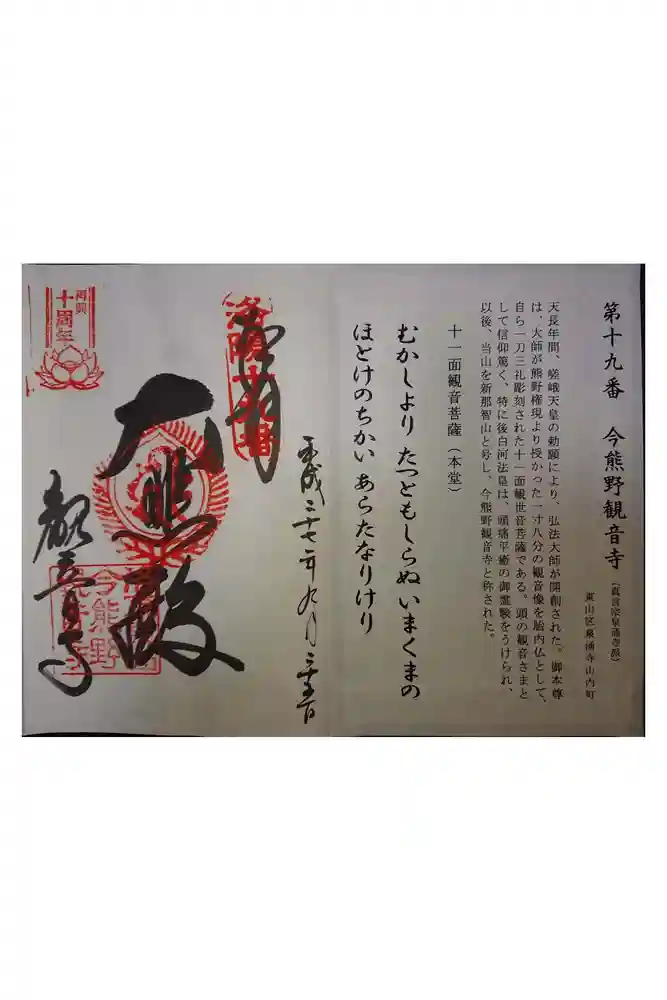 第十九番 今熊野観音寺 (真言宗泉涌寺派)
東山区泉涌寺山内町
天長年間、嵯峨天皇の勅願により、弘法大師が開創された。御本尊
は、大師が熊野権現より授かった一寸八分の観音像を胎内仏として、
自ら一刀三礼彫刻された十一面観世音菩薩である。頭の観音さまと
して信仰篤く、特に後白河法皇は、頭痛平癒の御霊験をうけられ、
以後、当山を新那智山と号し、今熊野観音寺と称された。
十一面観音菩薩(本堂)
むかしより たつともしらぬ いまくまの
ほとけのちかい あらたなりけり
平成二十七年九月二十五日
奉拝
洛陽十九番
大悲殿
観音寺
今熊野
再興
十周年